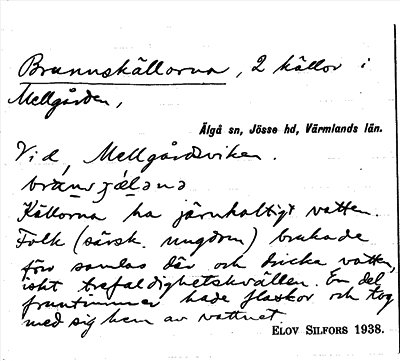 Brunnskällorna, 2 källor i
Mellgården,
Älgå sn, Jösse hd, Värmlands län.
Vid Mellgårdsviken.
Källorna ha järnhaltigt vatten.
Folk (särsk. ungdom) brukade
förr samlas där och dricka vatten,
isht trefaldighetskvällen. En del
fruntimmer hade flaskor och tog
med sig hem av vattnet.
ELOV SILFORS 1938.